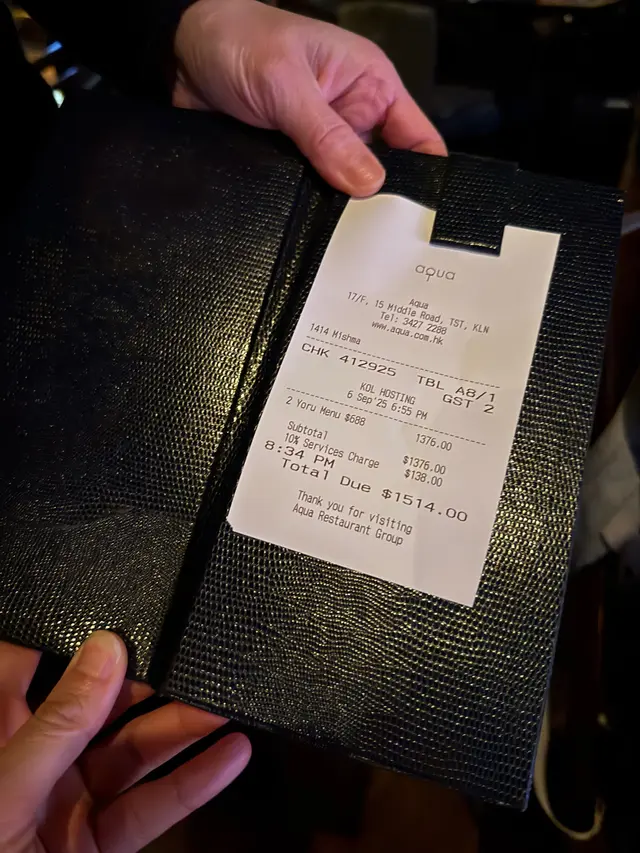 aqua
Aqua
17/F, 15 Middle Road, TST, KLN
Tel: 3427 2288
www.aqua.com.hk
1414 Mishma
CHK 412925 TBL A8/1
GST 2
KOL HOSTING
6 Sep'25 6:55 PM
2 Yoru Menu $688 1376.00
Subtotal $1376.00
10% Services Charge $138.00
8:34 PM
Total Due $1514.00
Thank you for visiting
Aqua Restaurant Group